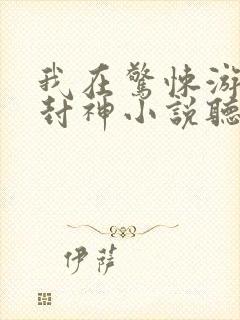 我在驚悚游
封神小說聽
伊薩